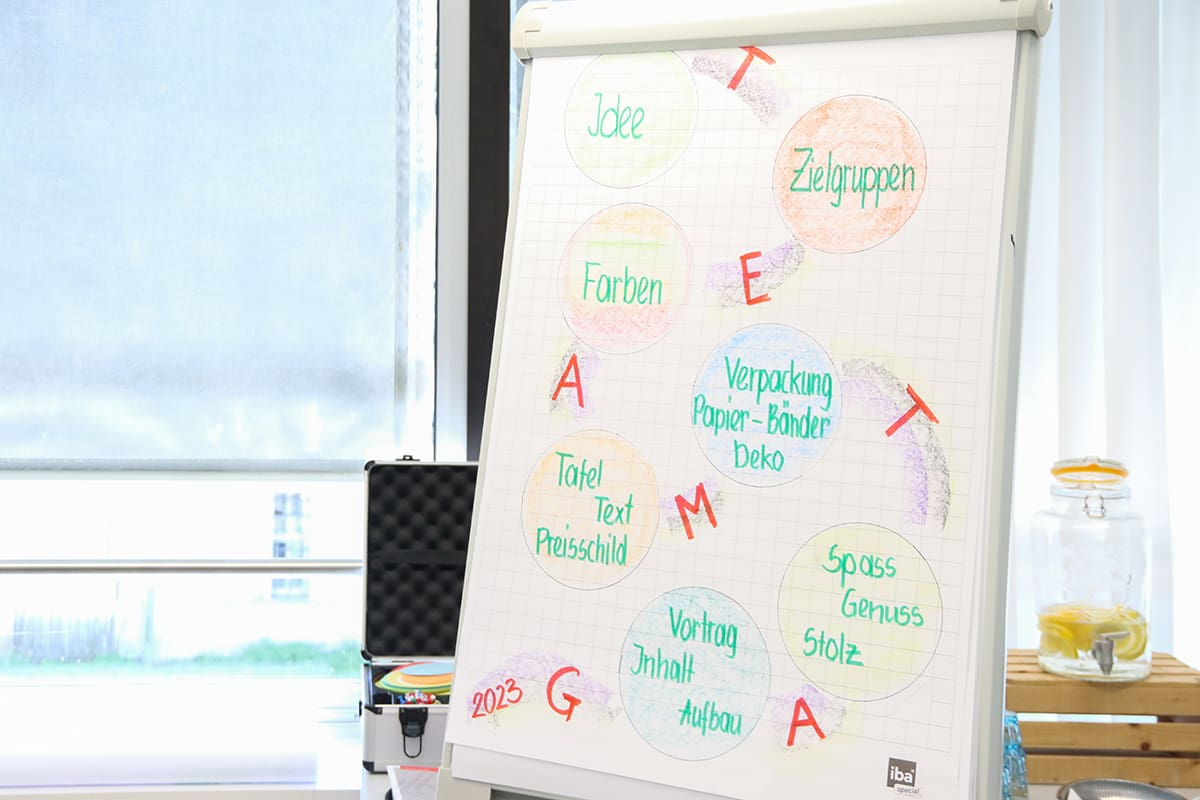 T
Jdee
Zielgruppen
E
Farben
A
Verpackung
Papier-Bänder
Deko
T
Tafel
Text
Preisschild
M
Spass
Genuss
Stolz
Vortrag
Jnhalt
Aufbau
2023
G
A
iba
special